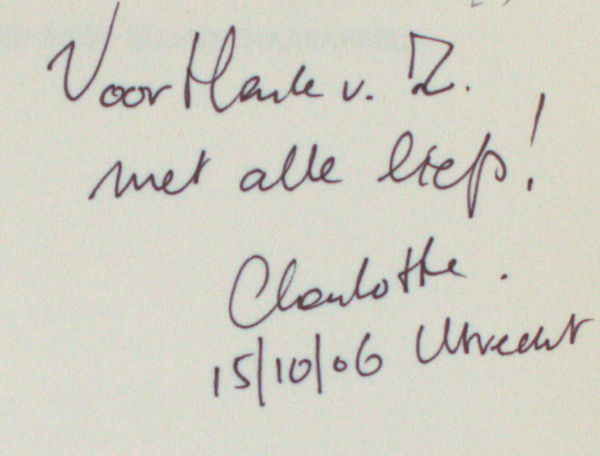 Voor v. Z.
met alle liefs!
Charlotte.
15/10/06 Utrecht